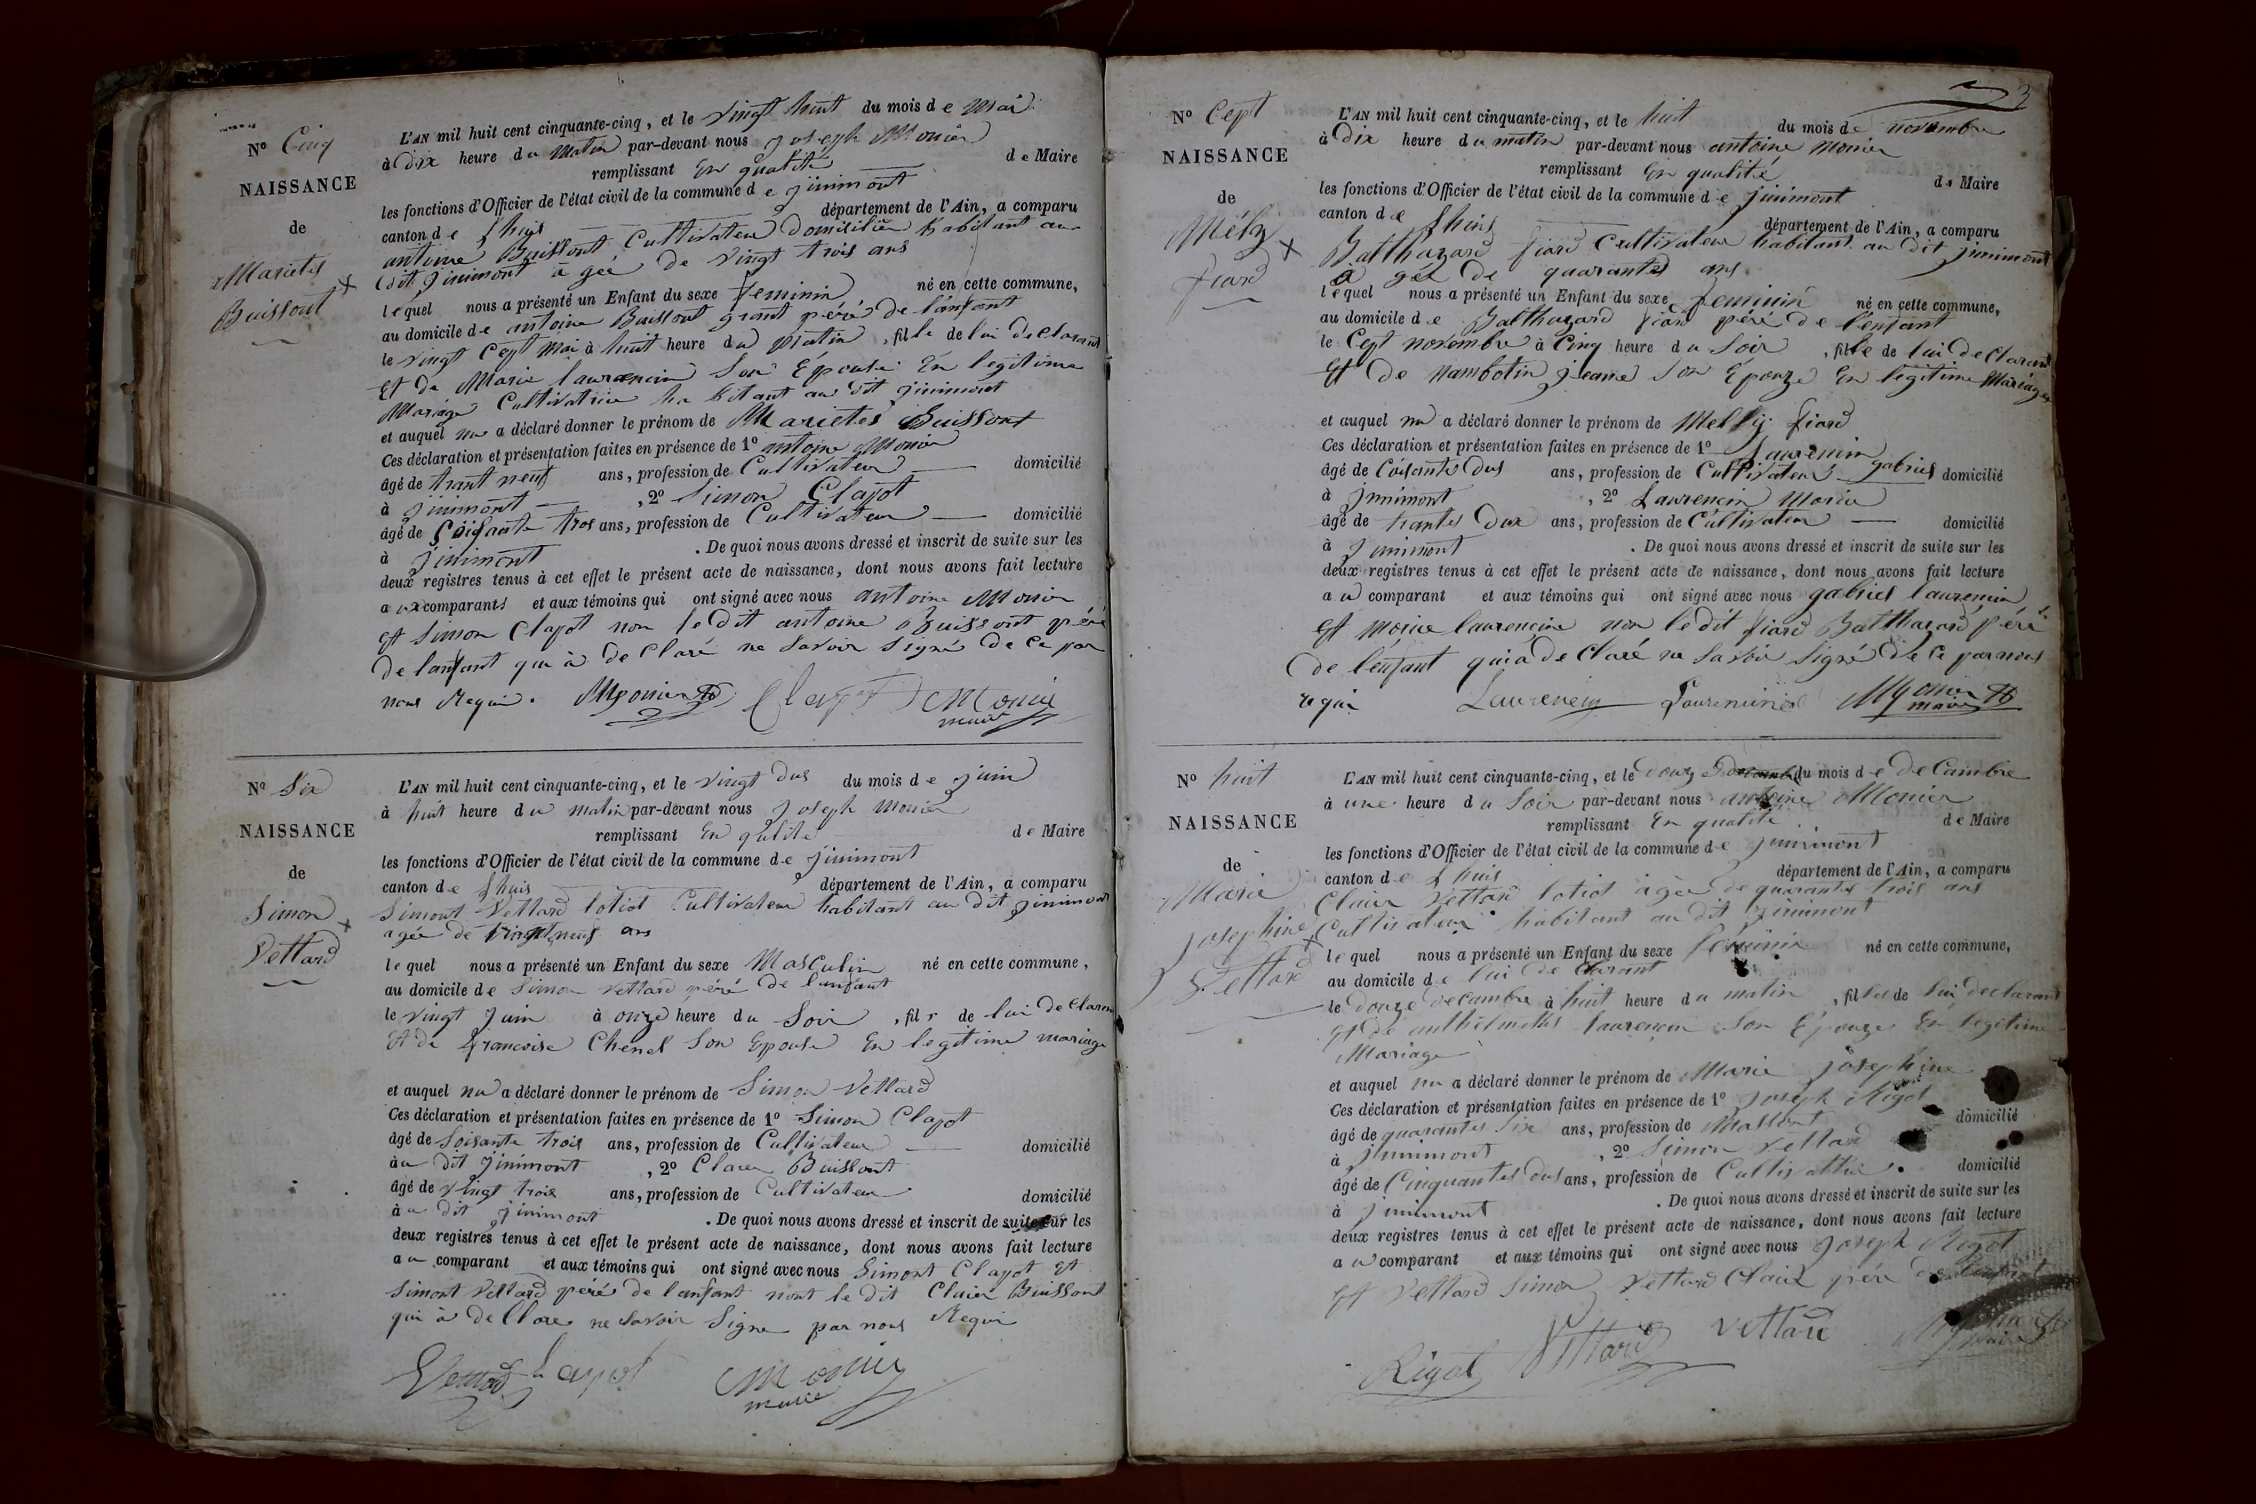 Nº Cinq
NAISSANCE
de
Marietes
Buissont
L'AN mil huit cent cinquante-cinq, et le vingt huit du mois de Mai
à dix heure du matin par-devant nous joseph Monier
remplissant En qualité de Maire
les fonctions d'Officier de l'état civil de la commune de jinimont
canton de Lhuis département de l'Ain, a comparu
antoine Buissont Cultivateur Domicilier habitant au
dit jinimont a gée de vingt trois ans
lequel nous a présenté un Enfant du sexe feminin né en cette commune,
au domicile de antoine Buissont grant péré de lanfant
le vingt Cept Mai à huit heure du matin, fille de lui declarant
Et de Marie laurencin Son Épouse En legitime
Mariage Cultivatrice habitant au dit jinimont
et auquel nu a déclaré donner le prénom de Marietes Buissont
Ces déclaration et présentation faites en présence de 1º antoine Monier
âgé de trant neuf ans, profession de Cultivateur domicilié
à jinimont, 2º Simon Clapot
âgé de Soisante tros ans, profession de Cultivateur domicilié
à jinimont. De quoi nous avons dressé et inscrit de suite sur les
deux registres tenus à cet effet le présent acte de naissance, dont nous avons fait lecture
aux comparants et aux témoins qui ont signé avec nous antoine Monier
Et Simon Clapot non le dit antoine Buissont péré
de lanfant qui à de Claré ne Savoir Signé de Ce par
nous Requi. Monier Clapot Monier
maire
Nº Six
NAISSANCE
de
Simon
Vettard
L'AN mil huit cent cinquante-cinq, et le vingt dus du mois de juin
à huit heure du matin par-devant nous joseph Monier
remplissant En qulité de Maire
les fonctions d'Officier de l'état civil de la commune de jinimont
canton de Lhuis département de l'Ain, a comparu
Simont Vettard lotiot Cultivateur habitant au dit jinimont
agée de neuf ans
lequel nous a présenté un Enfant du sexe Masculin né en cette commune,
au domicile de Simon Vettard péré de lanfant
le vingt juin à onze heure du Soir, fils de lui de Claren
Et de francoise Chenel Son Epouse En legitime mariage
et auquel nu a déclaré donner le prénom de Simon Vettard
Ces déclaration et présentation faites en présence de 1º Simon Clapot
âgé de Soisante trois ans, profession de Cultivateur domicilié
àu dit jinimont, 2º Claire Buissont
âgé de vingt trois ans, profession de Cultivateur domicilié
àu dit jinimont. De quoi nous avons dressé et inscrit de suite sur les
deux registres tenus à cet effet le présent acte de naissance, dont nous avons fait lecture
au comparant et aux témoins qui ont signé avec nous Simont Clapot Et
Simont Vettard péré de lanfant nont le dit Claire Buissont
qui à de Clare ne Savoir Signe par nous Requi
Vettard Clapot Monier
maire
3
Nº Cept
NAISSANCE
de
Mély
fiard
L'AN mil huit cent cinquante-cinq, et le huit du mois de novembre
à Dix heure du matin par-devant nous antoine Monier
remplissant En qualité de Maire
les fonctions d'Officier de l'état civil de la commune de jinimont
canton de Lhuis département de l'Ain, a comparu
Balthazard fiard Cultivateur habitant au dit jinimont
a gée de quarantes ans
lequel nous a présenté un Enfant du sexe feminin né en cette commune,
au domicile de Balthazard fiard péré de l'enfant
le Cept novembre à Cinq heure du Soir, fille de lui de Clarent
Et de Nambotin jeanne Son Épouze En legitime Mariage
et auquel nu a déclaré donner le prénom de Melly fiard
Ces déclaration et présentation faites en présence de 1º Laurencin
gabriel
âgé de Coisante dus ans, profession de Cultivateur domicilié
à jinimont, 2º Laurencin Morice
âgé de trantes dux ans, profession de Cultivateur domicilié
à jinimont. De quoi nous avons dressé et inscrit de suite sur les
deux registres tenus à cet effet le présent acte de naissance, dont nous avons fait lecture
au comparant et aux témoins qui ont signé avec nous gabriel laurencin
Et Morice laurencin non le dit fiard Balthazard péré
de lenfant qui a de Claré ne Savoir Signé de Ce par nous
requi Laurencin Laurencin Monier
maire
Nº huit
NAISSANCE
de
Marie
josephine
Vettard
L'AN mil huit cent cinquante-cinq, et le douze du mois de decambre
à une heure du Soir par-devant nous antoine Monier
remplissant En qualité de Maire
les fonctions d'Officier de l'état civil de la commune de jinimont
canton de Lhuis département de l'Ain, a comparu
Claire Vettard lotiot agée de quarantes trois ans
Cultivateur habitant au dit jinimont
lequel nous a présenté un Enfant du sexe féminin né en cette commune,
au domicile de lui de Clarant
le douze decambre à huit heure du matin, fille de lui declarant
Et de laurencin Son Épouze En legitime
Mariage
et auquel nu a déclaré donner le prénom de Marie josephine
Ces déclaration et présentation faites en présence de 1º joseph Rigot
âgé de quarantes six ans, profession de Massont domicilié
à jinimont, 2º Simon Vettard
âgé de Cinquantes dus ans, profession de domicilié
à jinimont. De quoi nous avons dressé et inscrit de suite sur les
deux registres tenus à cet effet le présent acte de naissance, dont nous avons fait lecture
au comparant et aux témoins qui ont signé avec nous joseph Rigot
Et Vettard Simon Vettard Claire pére de lenfant
Rigot Vettard Vettard
maire